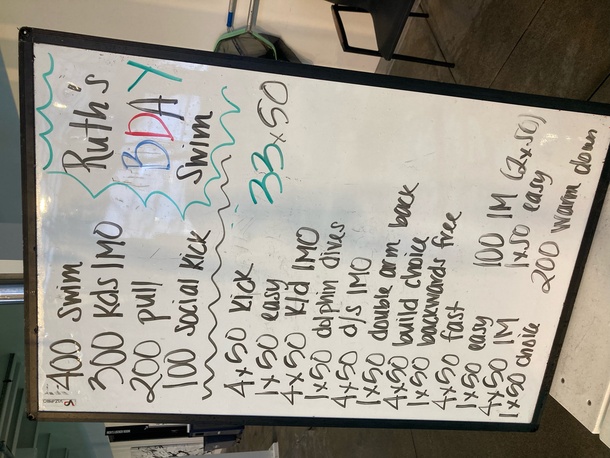 400 swim
300 Kds IMO
200 pull
100 social kick
Ruth's
BDAY
swim
33x50
4x50 kick
1x50 easy
4x50 k/d IMO
1x50 dolphin dives
4x50 d/s IMO
1x50 double arm back
4x50 build choice
1x50 backwards free
4x50 fast
1x50 easy
4x50 IM
1x50 choice
100 IM (2x50)
1x50 easy
200 warm down